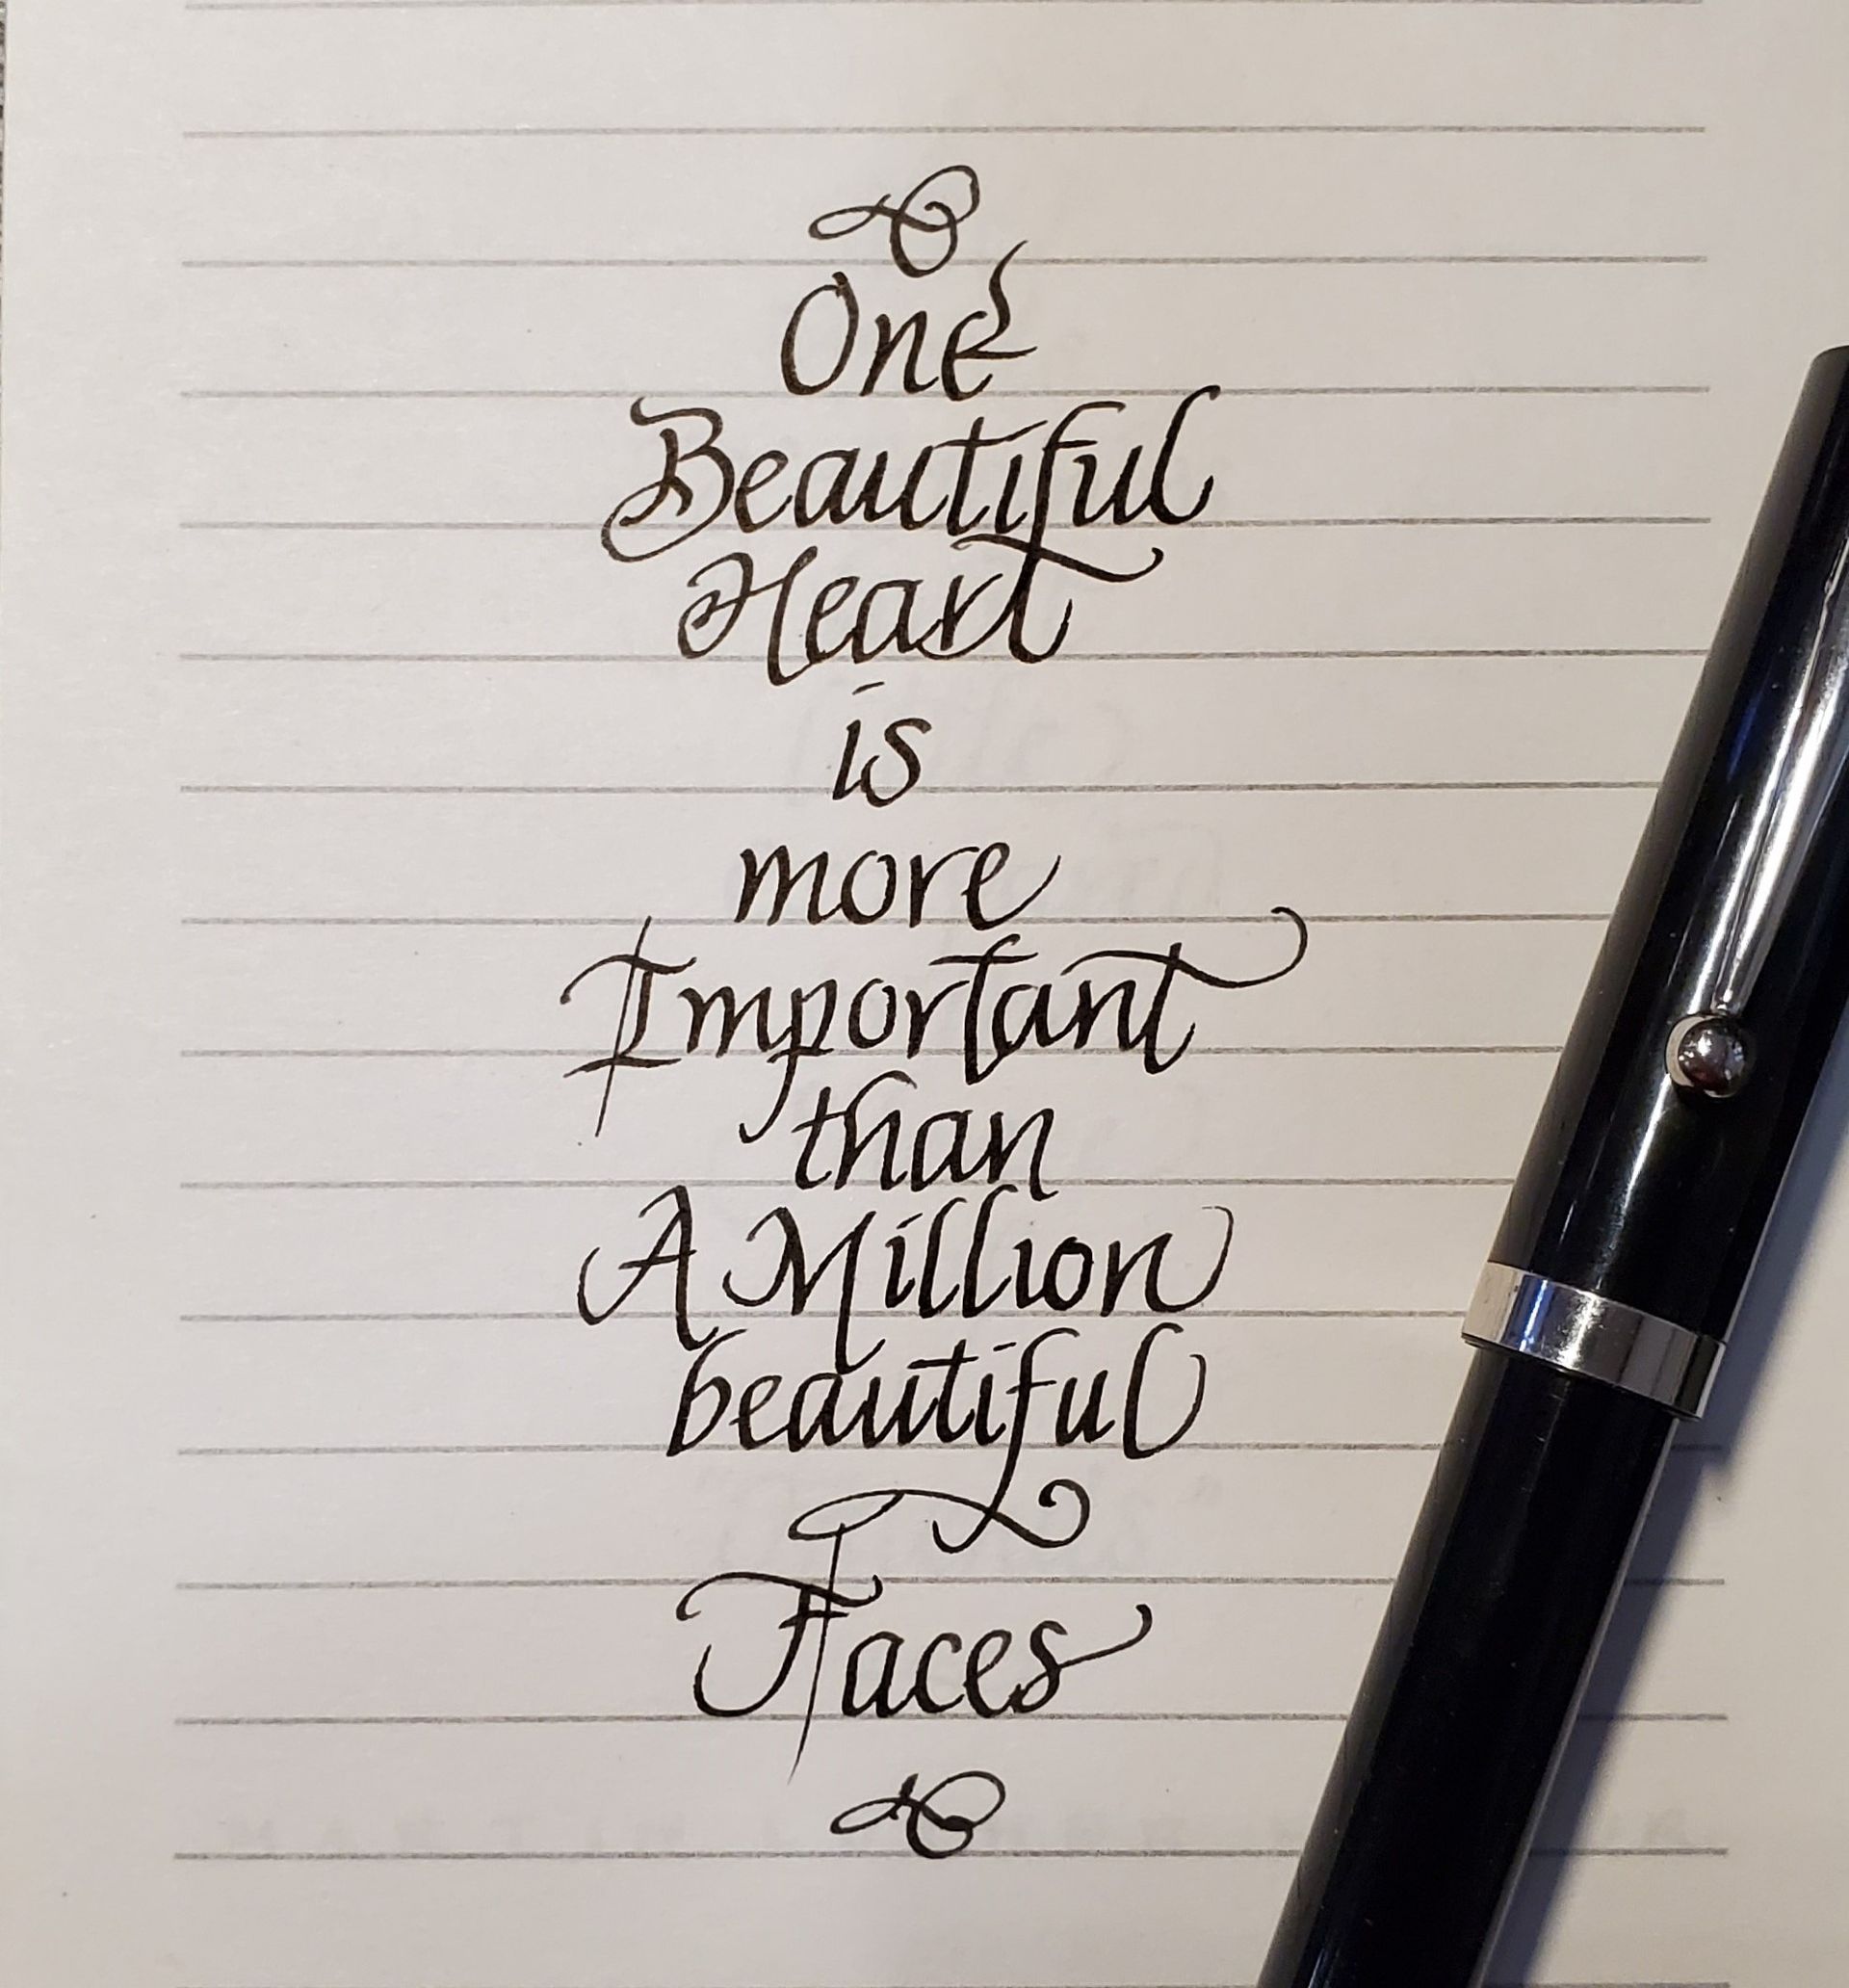 One
Beautiful
Heart
is
more
Important
than
A Million
beautiful
Faces